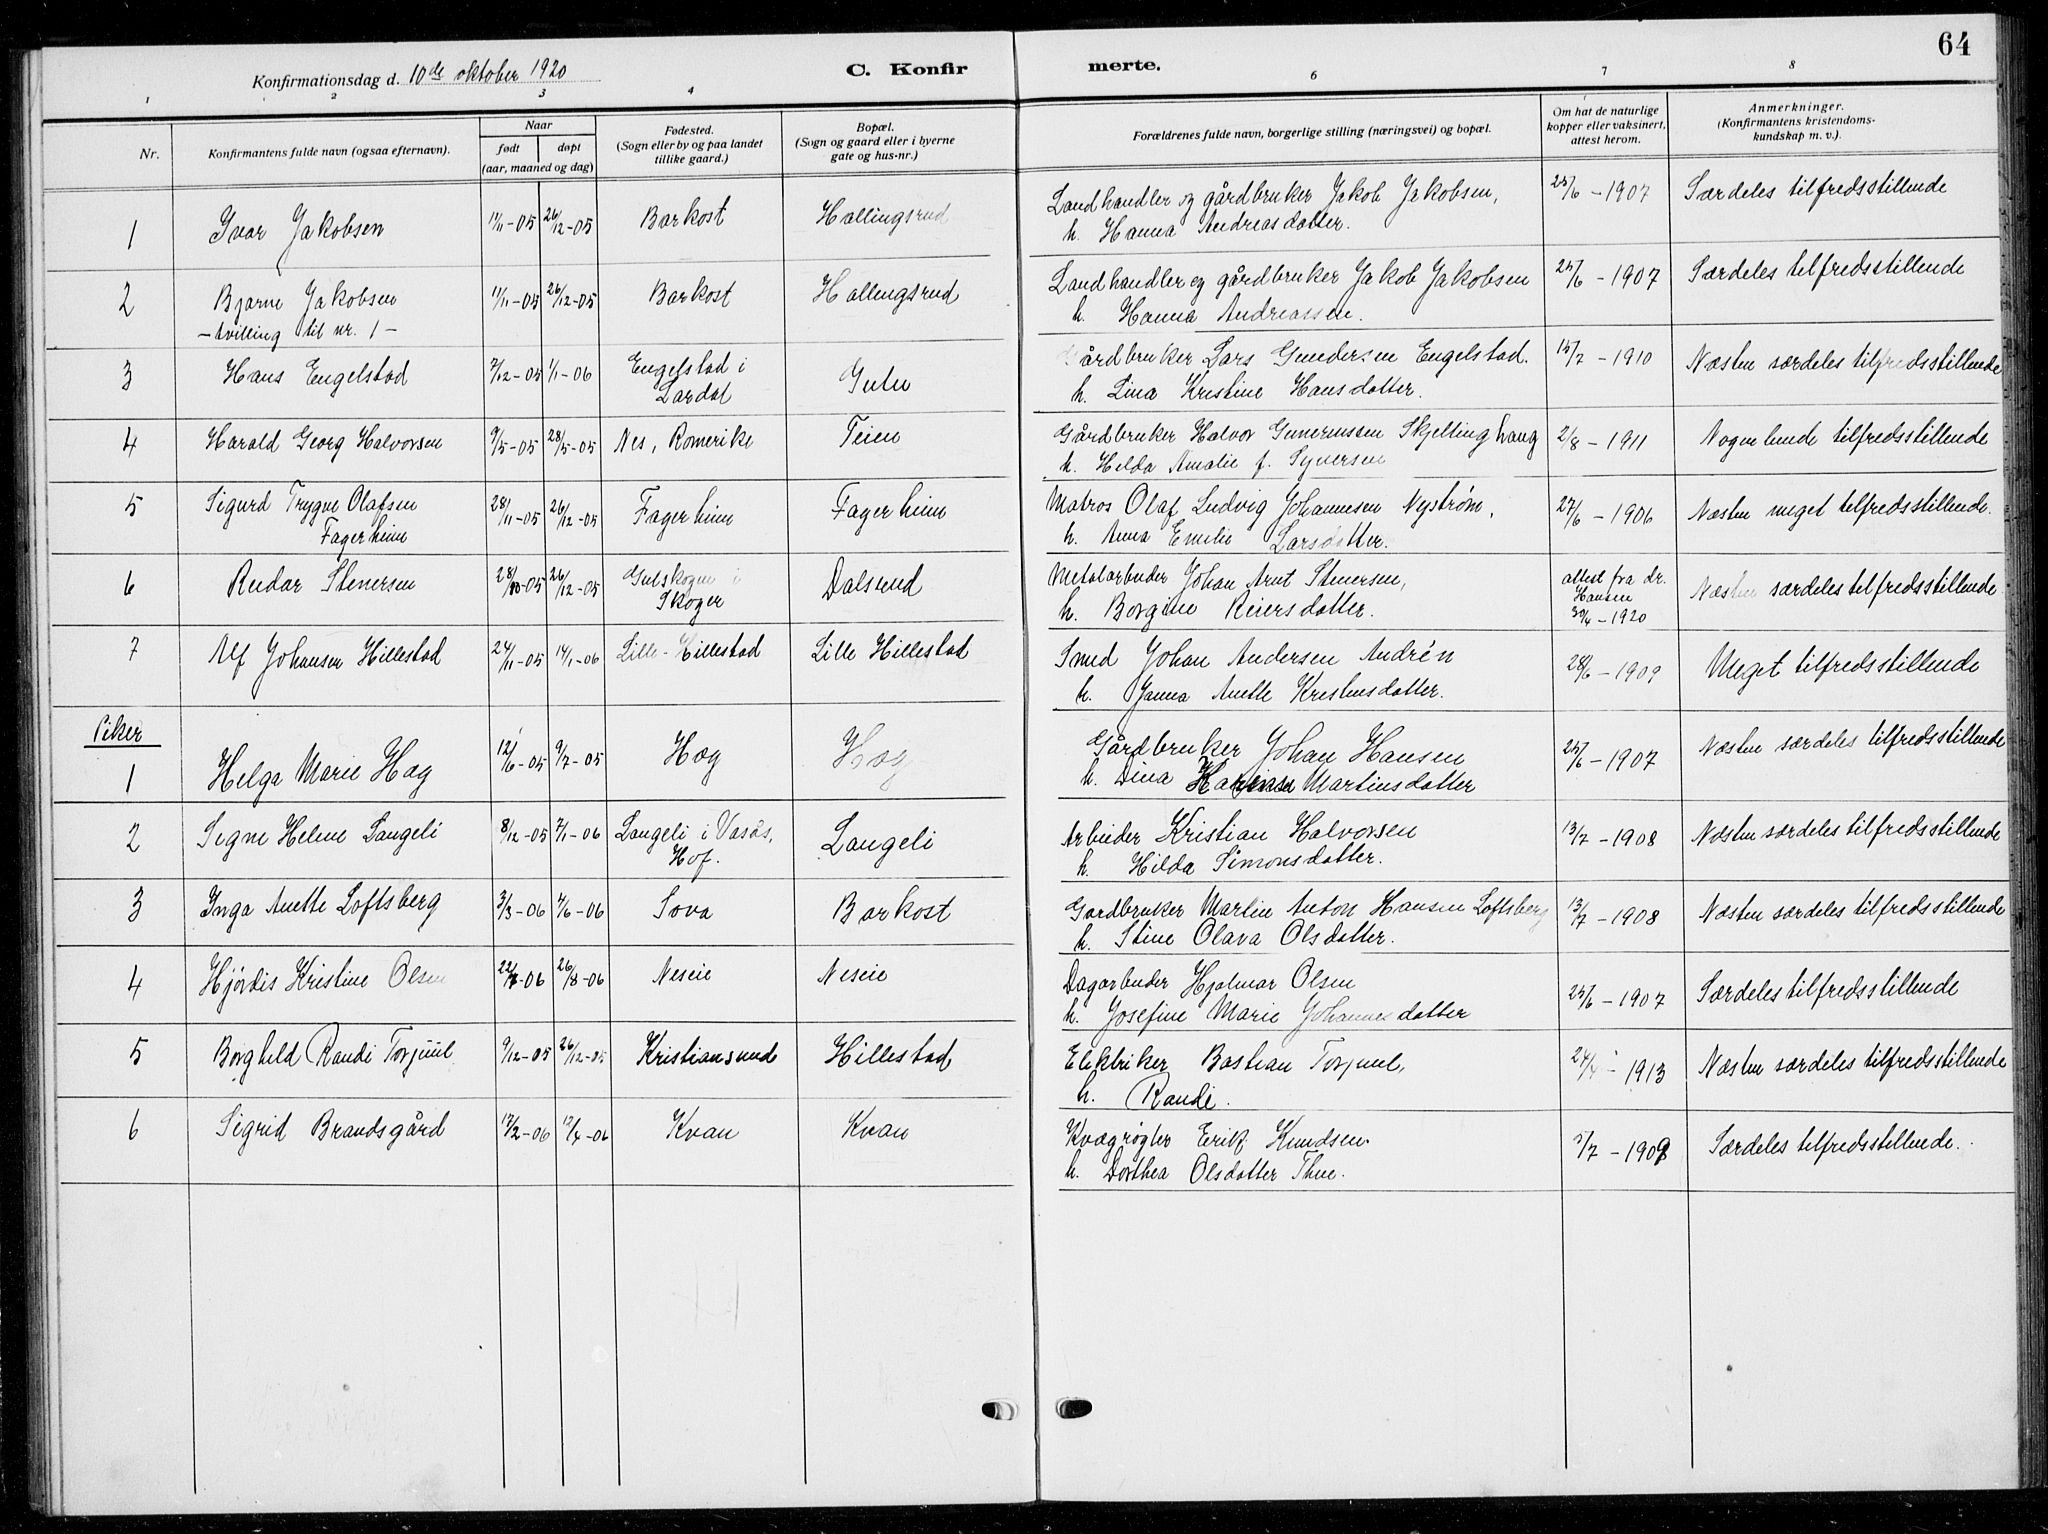 64
Konfirmationsdag d. 10de oktober 1920
C. Konfir merte.
1 2 3 4 6 7 8
Nr. Konfirmantens fulde navn (ogsaa efternavn). Naar født døpt (aar, maaned og dag) Fødested. (Sogn eller by og paa landet tillike gaard.) Bopæl. (Sogn og gaard eller i byerne gate og hus-nr.) Forældrenes fulde navn, borgerlige stilling (næringsvei) og bopæl. Om hat de naturlige kopper eller vaksinert, attest herom. Anmerkninger. (Konfirmantens kristendomskundskap m. v.)
1 Ivar Jakobsen 11/11-05 26/12-05 Barkost Hallingsrud Landhandler og gårdbruker Jakob Jakobsen, 25/6-1907 Særdeles tilfredsstillende
h. Hanna Andreasdatter.
2 Bjarne Jakobsen 11/11-05 26/12-05 Barkost Hallingsrud Landhandler og gårdbruker Jakob Jakobsen 25/6-1907 Særdeles tilfredsstillende
-tvilling til nr. 1- h. Hanna Andreassen.
3 Hans Engelstad 7/12-05 1/1-06 Engelstad i Lardal Gulu Gårdbruker Lars Gundersen Engelstad. 15/7-1910 Næsten særdeles tilfredsstillende
h. Lina Kristine Hansdatter.
4 Harald Georg Halvorsen 9/5-05 28/5-05 Nes, Romerike Teien Gårdbruker Halvor Guneriussen Skjellinghaug 2/8-1911 Nogenlunde tilfredsstillende
h. Hilda Amalie f. Syversen
5 Sigurd Trygve Olafsen 28/11-05 26/12-05 Fagerheim Fagerheim Matros Olaf Ludvig Johannesen Nystrøm, 27/6-1906 Næsten meget tilfredsstillende.
Fagerheim h. Anna Emilie Larsdatter.
6 Reidar Stenersen 28/10-05 26/12-05 Gulskogen i Skoger Dalsrud Metalarbeider Johan Arnt Stenersen, attest fra dr. Hansen 30/4-1920 Næsten særdeles tilfredsstillende
h. Borgine Reiersdatter.
7 Alf Johansen Hillestad 24/11-05 14/1-06 Lille-Hillestad Lille Hillestad Smed Johan Andersen Andrén 28/6-1909 Meget tilfredsstillende
h. Janna Anette Kristensdatter.
Piker
1 Helga Marie Hag 12/6-05 9/7-05 Hag Hag Gårdbruker Johan Hansen 25/6-1907 Næsten særdeles tilfredsstillende
h. Dina Martinsdatter
2 Signe Helene Langeli 8/12-05 7/1-06 Langeli i Vasås, Hof. Langeli Arbeider Kristian Halvorsen 13/7-1908 Næsten særdeles tilfredsstillende
h. Hilda Simonsdatter.
3 Inga Anette Loftsberg 3/3-06 4/6-06 Sova Barkost Gardbruker Martin Anton Hansen Loftsberg 13/7-1908 Næsten særdeles tilfredsstillende
h. Stine Olava Olsdatter.
4 Hjørdis Kristine Olsen 22/7-06 26/8-06 Neseie Neseie Dagarbeider Hjalmar Olsen 25/6-1907 Særdeles tilfredsstillende
h. Josefine Marie Johannesdatter
5 Borghild Randi Torjuul 9/12-05 26/12-05 Kristiansund Hillestad Elektriker Bastian Torjuul, 24/4-1913 Næsten særdeles tilfredsstillende
h. Randi.
6 Sigrid Brandsgård 17/2-06 17/4-06 Kvan Kvan Kvægrøgter Erik Knudsen 5/7-1909 Særdeles tilfredsstillende.
h. Dorthea Olsdatter Thue.